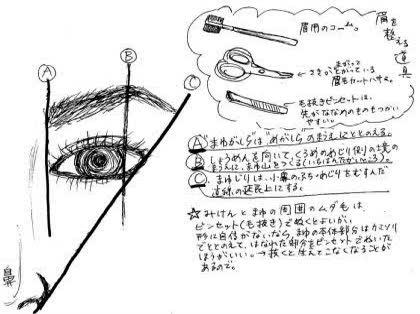 眉を
整える
道具
眉用のコーム。
まがって
さきがとがっている
眉毛カットバサミ。
毛抜きピンセットは、
先がななめのものもつかい
やすい。
A
B
C
鼻
A まゆがしらは めがしらの まうえに ととのえる。
B しょうめんを向いて、くろめのめじり側の境の
まうえに、まゆ山をつくる(いちばんたかいところ)。
C まゆじりは、小鼻のふちとめじりをむすんだ
直線の延長上にする。
☆みけんとまゆの周囲のムダ毛は
ピンセット(毛抜き)でぬくとよいが、
形に自信がないなら、まゆの本体部分はカミソリ
でととのえて、はなれた部分をピンセットでぬいた
ほうがいい。→抜くと生えてこなくなることが
あるので。